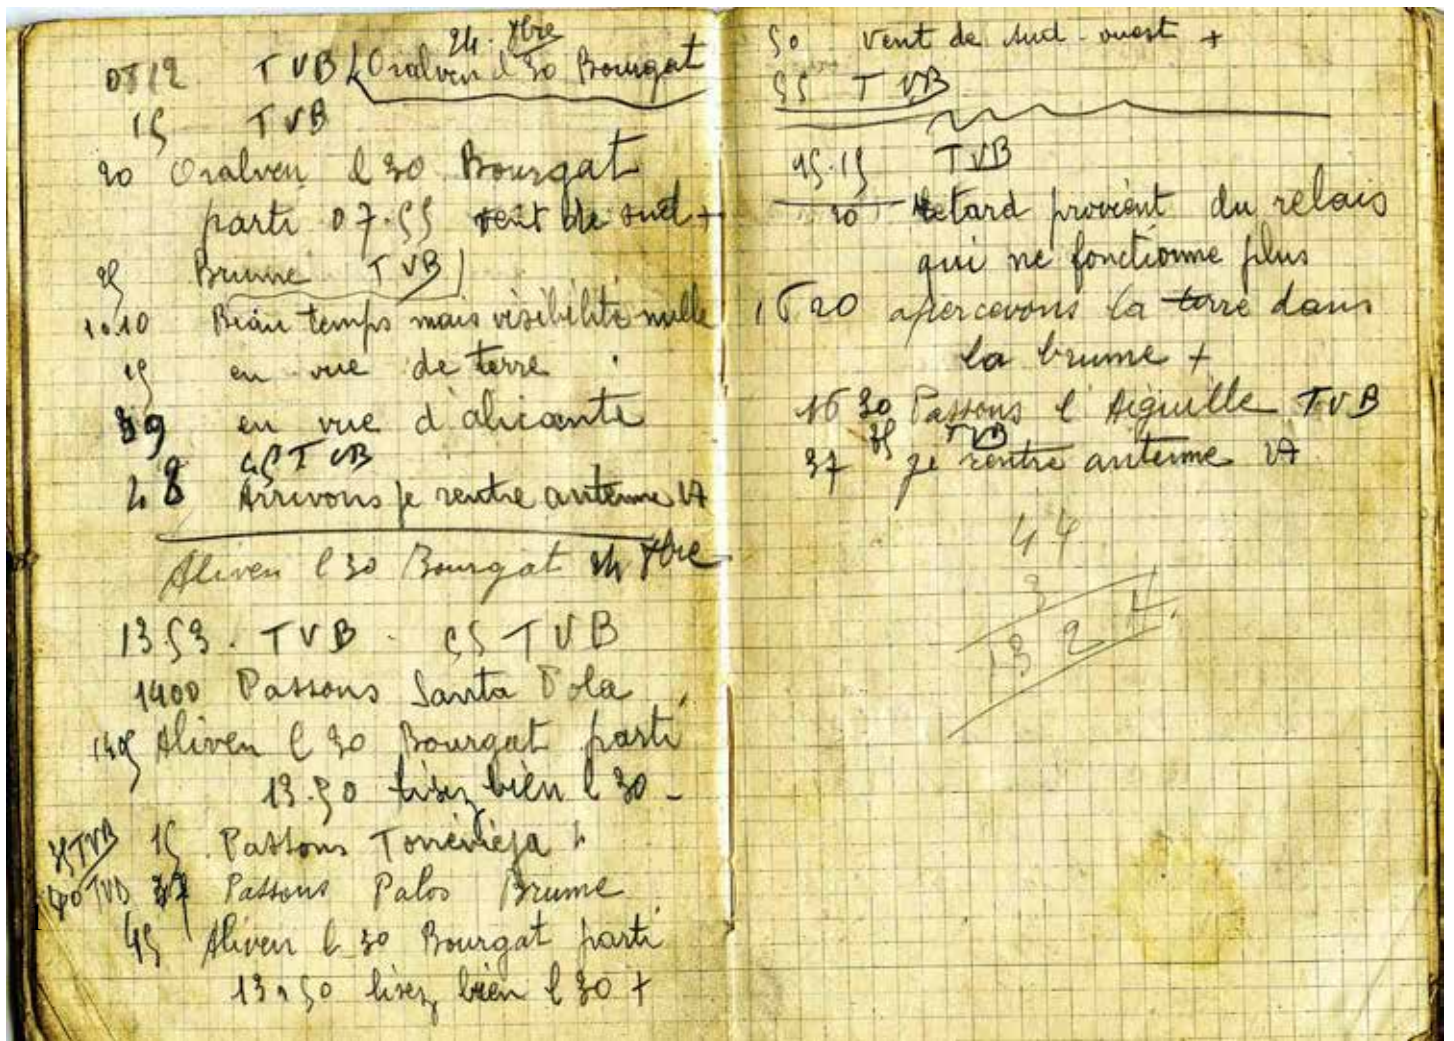 0812 TVB Oralven l 30 Bourgat
24. 7bre
15 TVB
20 Oralven l 30 Bourgat
parti 07.55 vent de sud +
25 Brume TVB
1010 Beau temps mais visibilité nulle
15 en vue de terre
39 en vue d'alicante
45 TVB
48 Arrivons je rentre antenne VA
Aliven l 30 Bourgat 24 7bre
1353. TVB - 55 TVB
1400 Passons Santa Pola
1405 Aliven l 30 Bourgat parti
13.50 lisez bien l 30 -
15 Passons Torrevieja +
35 TVB
40 TVB 37 Passons Palos Brume
45 Aliven l 30 Bourgat parti
13.50 lisez bien l 30 +
50 Vent de sud-ouest +
55 TVB
15.15 TVB
20 Retard provient du relais
qui ne fonctionne plus
1620 apercevons la terre dans
la brume +
16 30 Passons l'Aiguille TVB
35 TVB
37 je rentre antenne VA
44
3
132